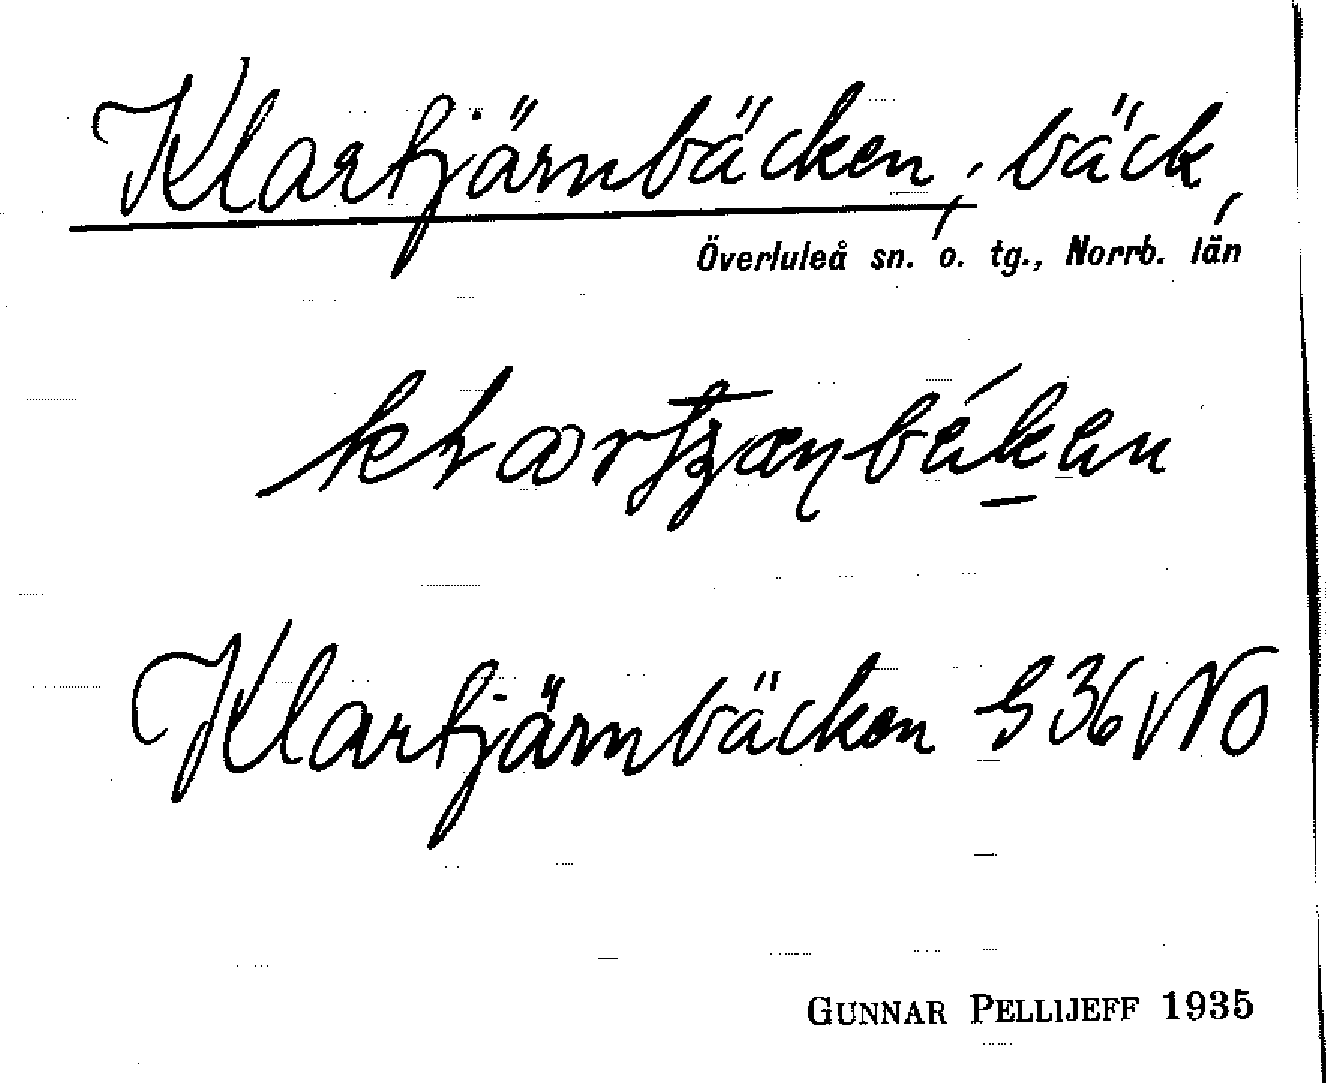 Klartjärnbäcken, bäck,
Överluleå sn. o. tg., Norrb. län
Klartjärnbäcken G 36 NO
GUNNAR PELLIJEFF 1935